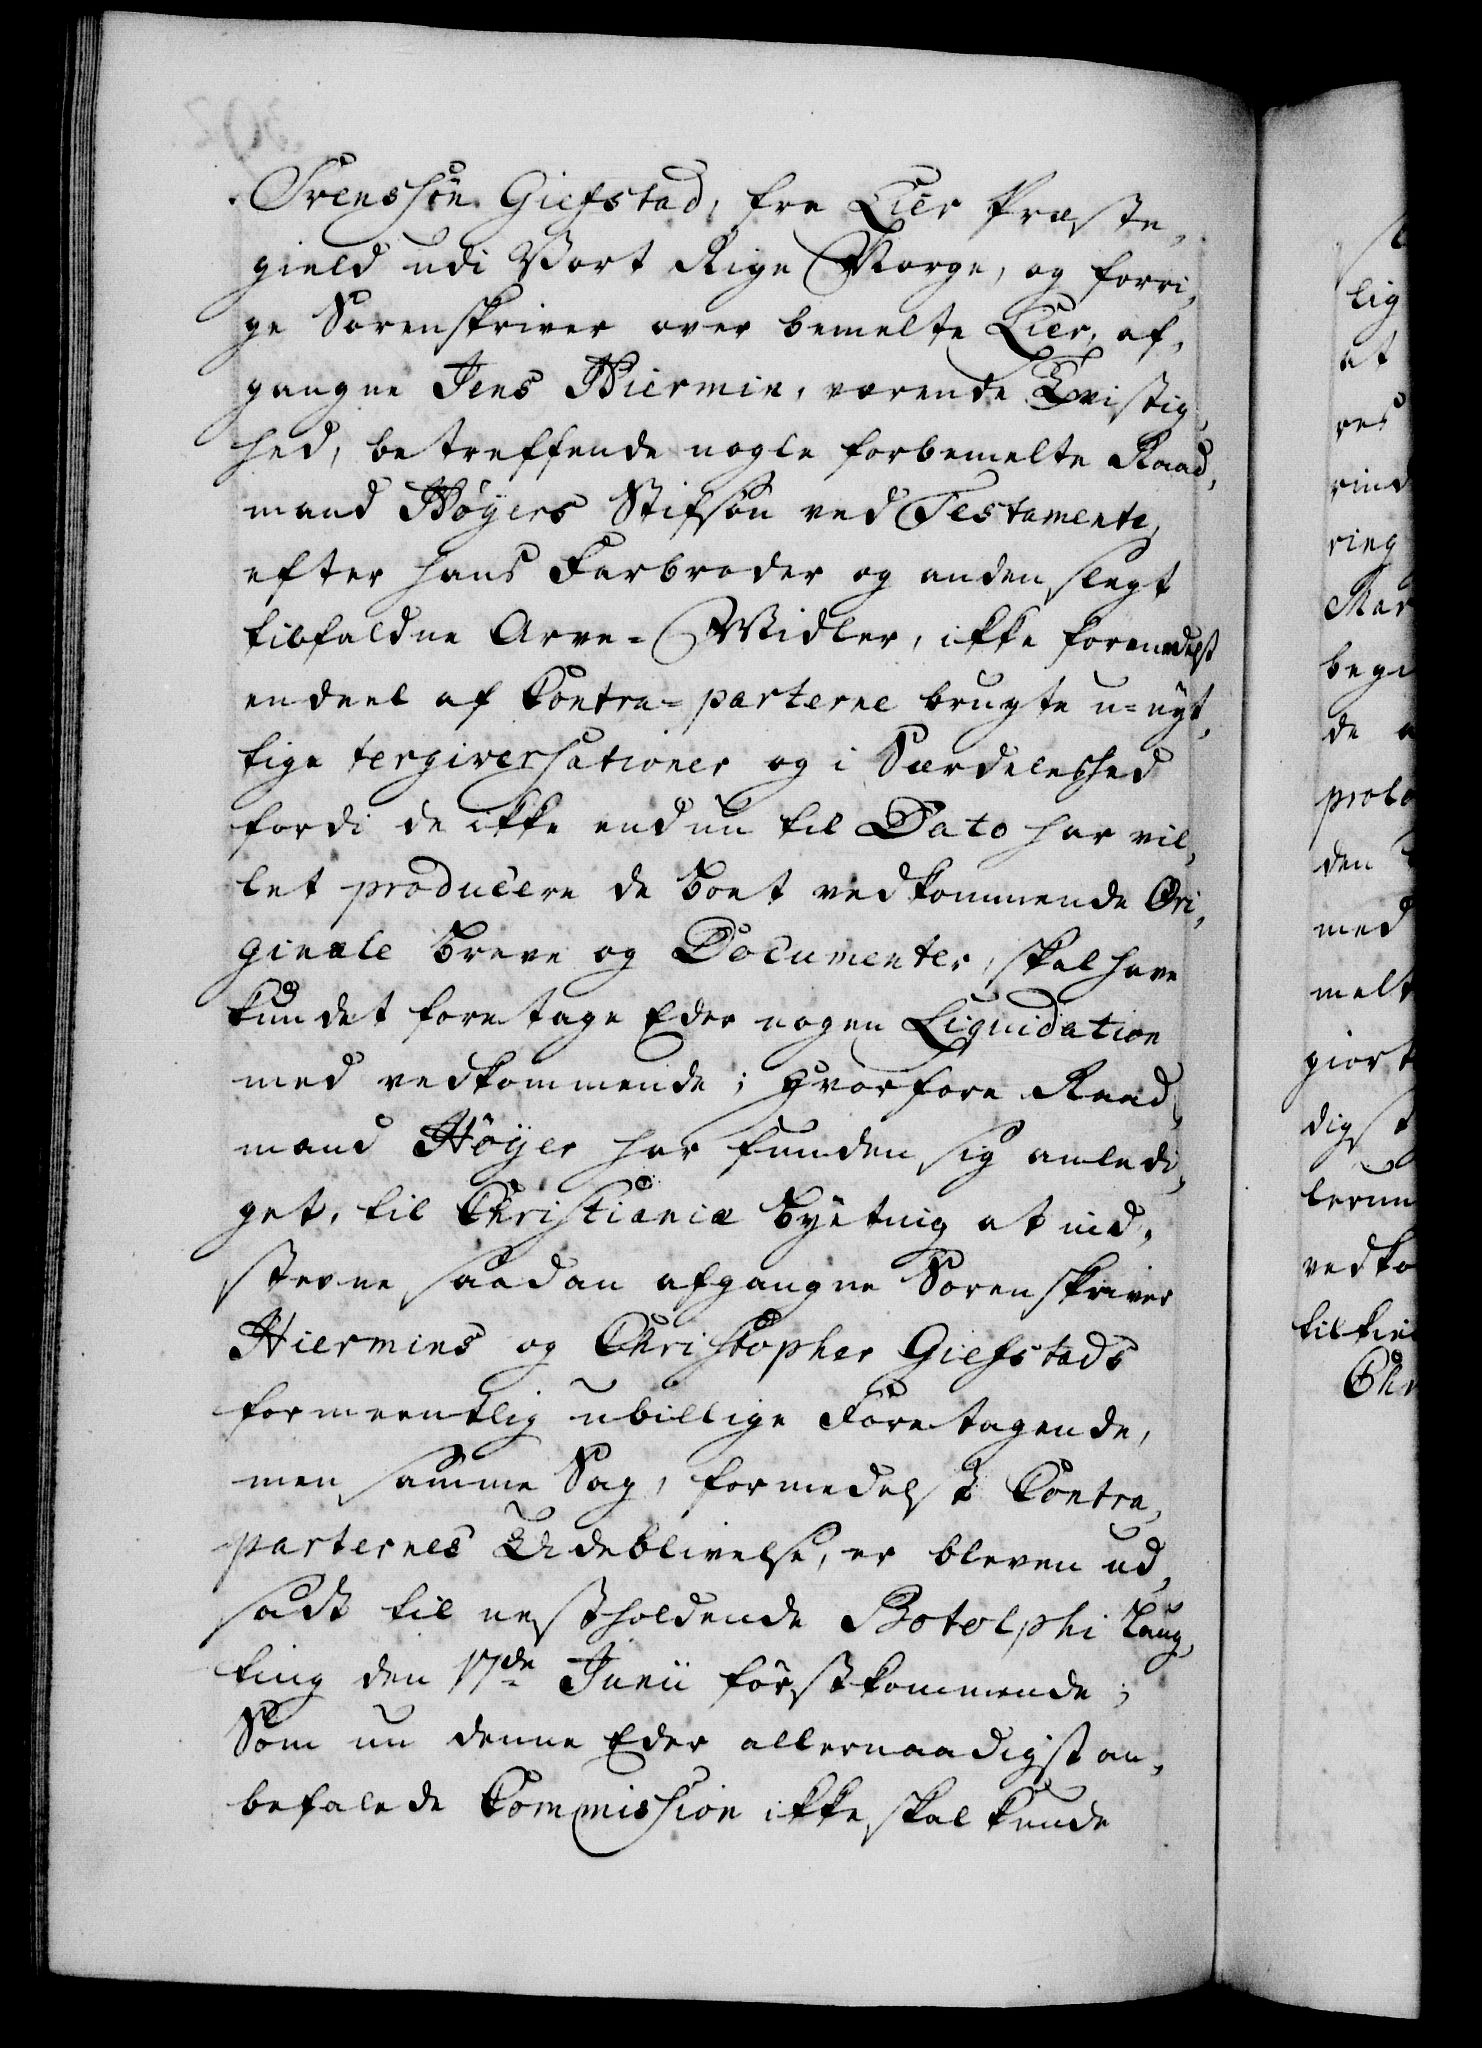 Svenssön Giefstad, fra Lier Præste,
gield udi Vort Rige Norge, og forri,
ge Sorenskriver over bemelte Lier, af,
gangne Jens Hiermin, værende Tvistig,
hed, betreffende nogle forbemelte Raad,
mand Höyers Stifsön ved Testamente,
efter hans Farbroder og anden slegt
tilfaldne Arve-Midler, ikke formedelst
endeel af Contra-parterne brugte u-nyt,
tige tergiversationer og i Særdeleshed
fordi de ikke endnu til Dato har vil,
let producere de Boet vedkommende Ori,
ginale Breve og Documenter, skal have
kundet foretage Eder nogen Liquidation
med vedkommende; hvorfore Raad,
mand Höyer har funden sig anledi,
get, til Christiania Byetnig at ind,
stevne saadan afgangne Sorenskriver
Hiermins og Christopher Giefstads
formeentlig ubillige Foretagende,
men samme Sag, formedelst Contra,
parternes Udeblivelse, er bleven ud,
sadt til nestholdende Botolphi Laug,
ting den 17de Junii förstkommende;
Som nu denne Eder allernaadigst an,
befalede Commission ikke skal kunde
lig
at
res
rind
ring
Mar
begi
de
proto
den
med
melt
giort
digst
lernn
vedko
tilkie
Chr